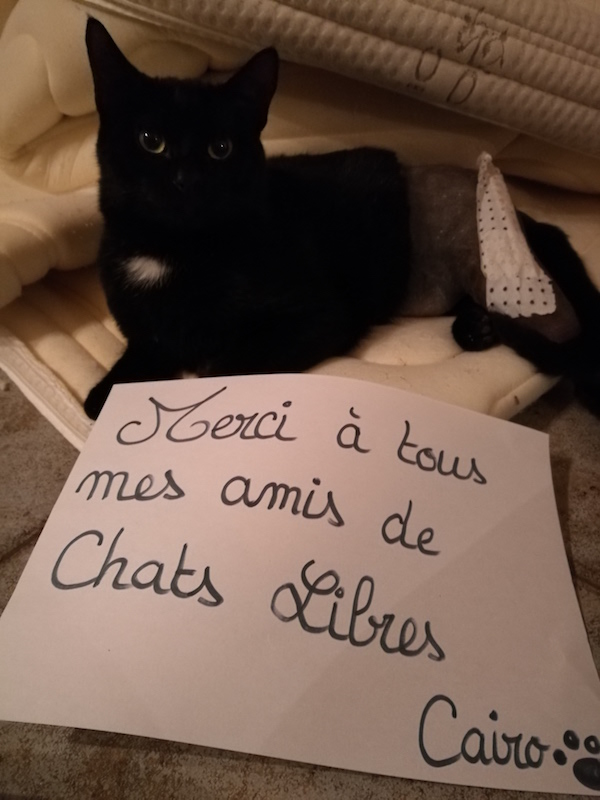 Merci à tous
mes amis de
Chats Libres
Cairo